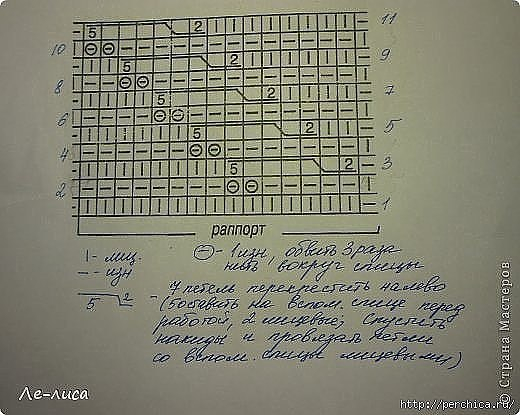 5 2 11
10
5 2 9
8
5 2 7
6
5 2 5
4
5 2 3
2
1
раппорт
| - лиц.
— - изн
⊖ - 1 изн, обвить 3 раза
нить вокруг спицы
5 2 - 7 петель перекрестить налево
(5 оставить на вспом. спице перед
работой, 2 лицевые; спустить
накиды и провязать петли
со вспом. спицы лицевыми)
Ле-лиса
© Страна Мастеров
http://perchica.ru/